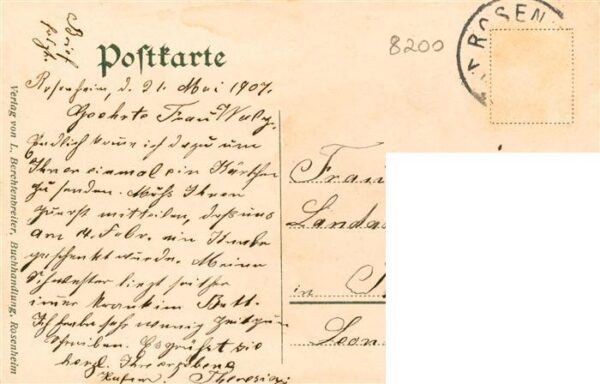 Brief folgt
Postkarte
8200
ROSEN
Rosenheim, d. 21. Mai 1907.
Geehrte Frau
Endlich komme ich dazu um
Ihnen einmal ein Kärtchen
zu senden. Muß Ihnen
zuerst mitteilen, daß uns
am 4. Febr. ein Knabe
geschenkt wurde. Meine
Schwester liegt seither
immer krank im Bett.
Ich habe sehr wenig Zeit zum
Schreiben. Es grüßt sie
herzl. Ihre ergebene
Theresia
Frau
Landes
in
Leon
Verlag von L. Berchtenbreiter, Buchhandlung, Rosenheim